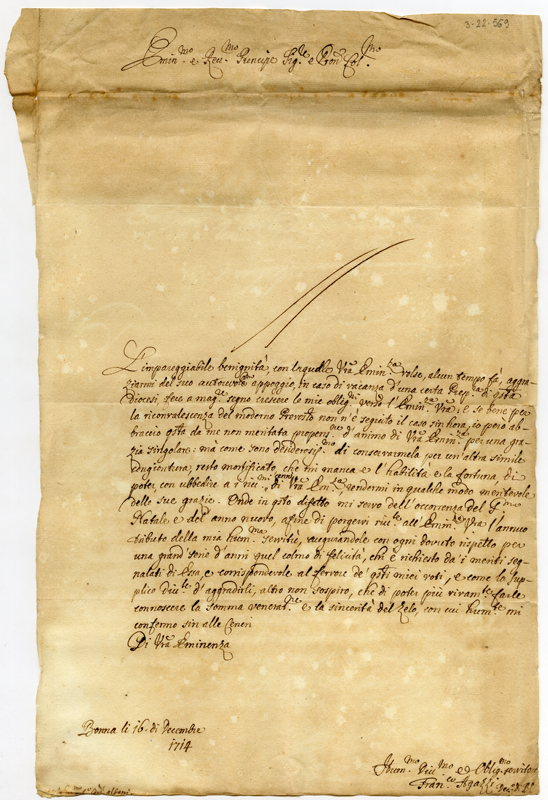 3-22-969
Emin.mo e Rev.mo Principe Sig.re e Pron Col.mo
L'impareggiabile benignità, con la quale V'ra Emin.za volse, alcun tempo fà, aggra-
ziarmi del suo autorevole appoggio, in caso di vacanza d'una certa Prep.ra di q'sta
Diocesi, fece a mag.re segno crescere le mie oblig.ni verso l'Emin.za V'ra; e se bene per
la riconvalescenza del moderno Provosto non n'è seguito il caso sin hora, io però ab-
braccio q'sta da me non meritata propens.ne d'animo di V'ra Emin.za per una gra-
zia singolare: mà come sono desideros.mo di conservarmela per un'altra simile
congientura, resto mortificato, che mi manca e l'habilità e la fortuna, di
poter con ubbedire a i riv.mi cenni di V'ra Em.za, rendermi in qualche modo meritevole
delle sue grazie. Onde in q'sto difetto mi servo dell'occorrenza del S.mo
Natale e del anno nuovo, a fine di porgere riv.te all'Emin.za V'ra l'annuo
tributo della mia hum.ma servitù, auguriandole con ogni dovuto rispetto per
una grand serie d'anni quel colmo di felicità, ch'è richiesto da' i meriti seg-
nalati di Essa e corrispondevole al fervore de' q'sti miei voti, e come la sup-
plico di aggradirli, altro non sospiro, che di poter più vivam.te farle
connoscere la somma venerat.ne e la sincerità del zelo, con cui hum.te mi
confermo sin alle Ceneri
Di V'ra Eminenza
Bonna li 16. di Decembre
1714
Hum.mo Div.mo et Oblig.mo servitore
Fran.co